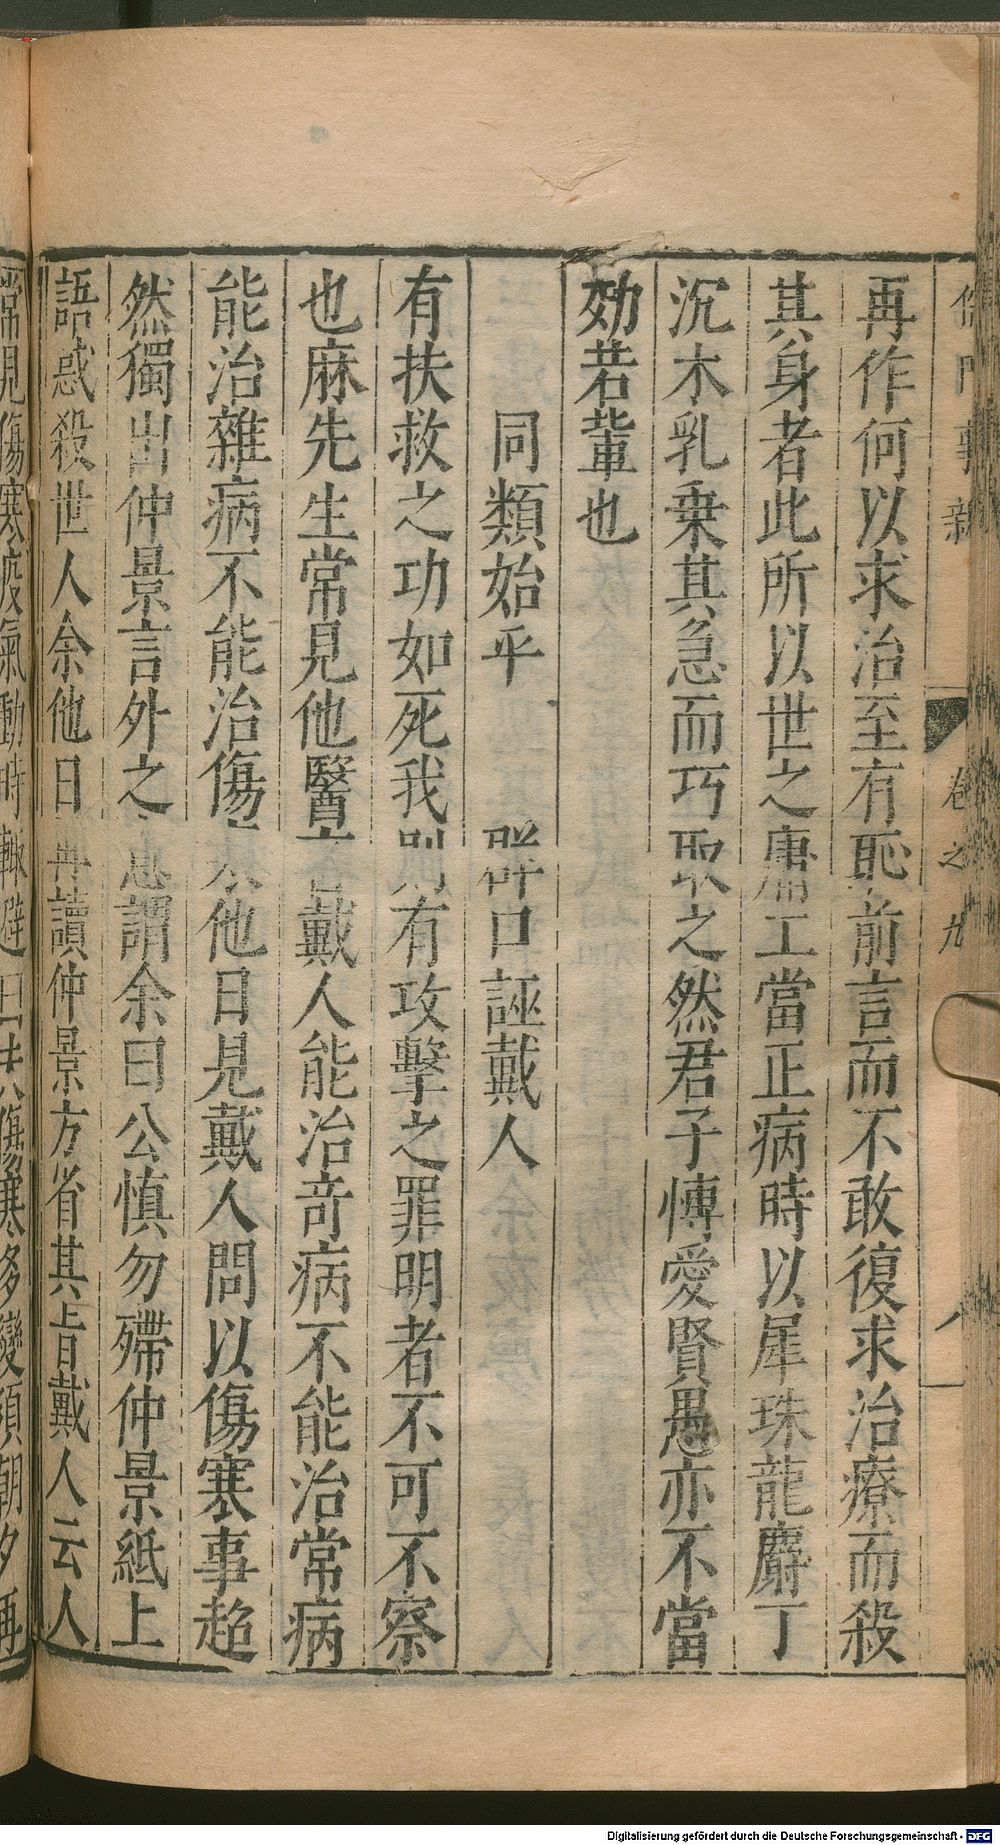 儒門事親
卷之九
八
再作何以求治至有恥前言而不敢復求治療而殺
其身者此所以世之庸工當正病時以犀珠龍麝丁
沉木乳乗其急而巧取之然君子慱愛賢愚亦不當
効若輩也
同類始平 群口誣戴人
有扶救之功如死我則有攻擊之罪明者不可不察
也麻先生常見他醫言戴人能治竒病不能治常病
能治雜病不能治傷寒他日見戴人問以傷寒事超
然獨出仲景言外之意謂余曰公慎勿殢仲景紙上
語惑殺世人余他日再讀仲景方省其旨戴人云人
常見傷寒疫氣動時輒避曰夫傷寒多變須朝夕再
Digitalisierung gefördert durch die Deutsche Forschungsgemeinschaft - DFG